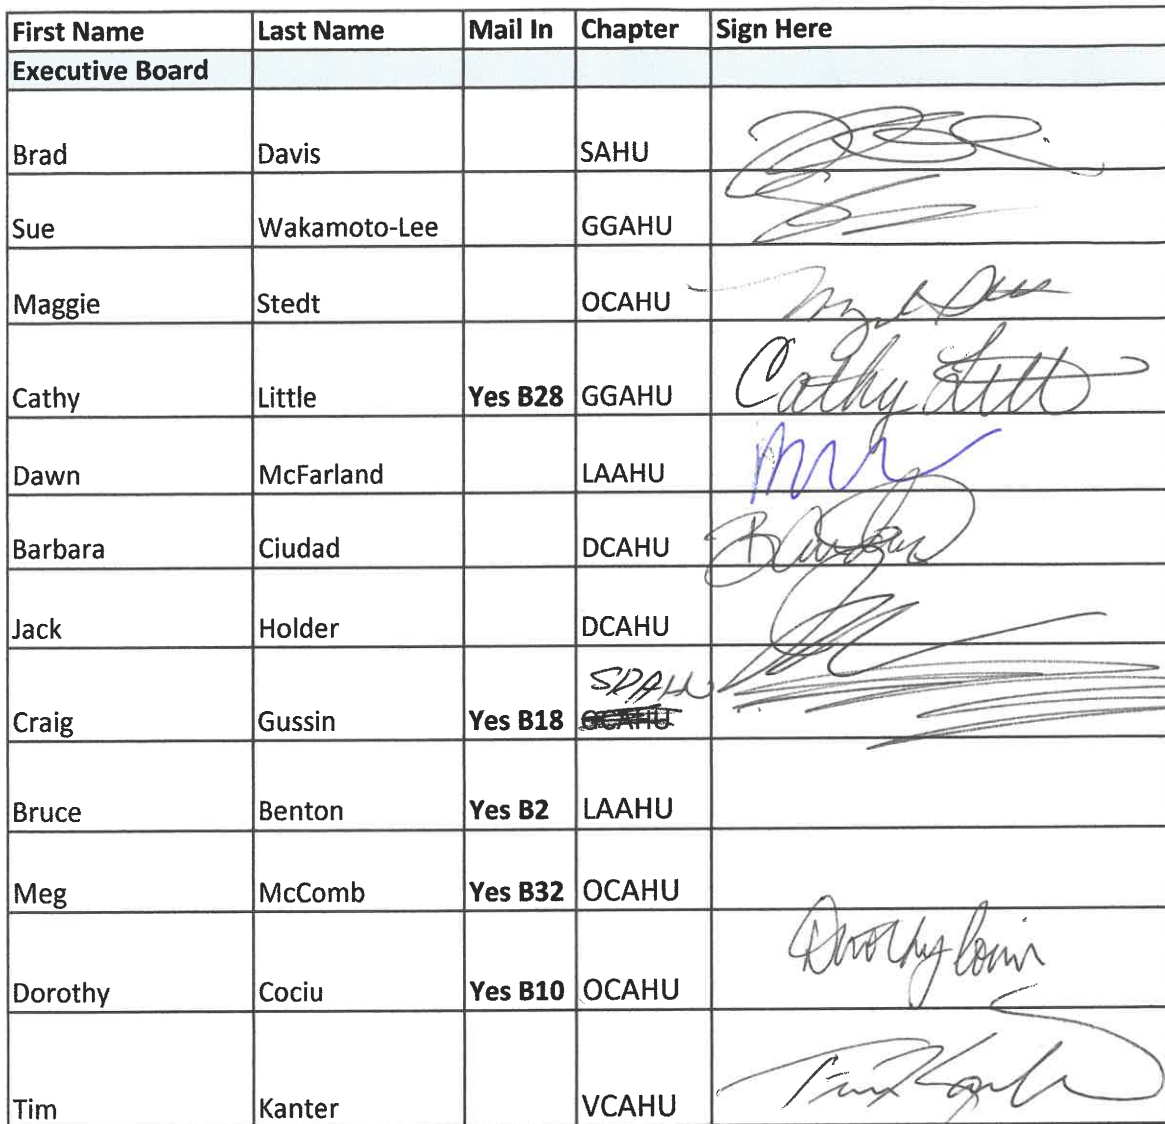 First Name Last Name Mail In Chapter Sign Here
Executive Board
Brad Davis SAHU
Sue Wakamoto-Lee GGAHU
Maggie Stedt OCAHU
Cathy Little Yes B28 GGAHU Cathy Litt
Dawn McFarland LAAHU
Barbara Ciudad DCAHU
Jack Holder DCAHU
SDAHU
Craig Gussin Yes B18 OCAHU
Bruce Benton Yes B2 LAAHU
Meg McComb Yes B32 OCAHU
Dorothy Cociu Yes B10 OCAHU Dorothy Cociu
Tim Kanter VCAHU